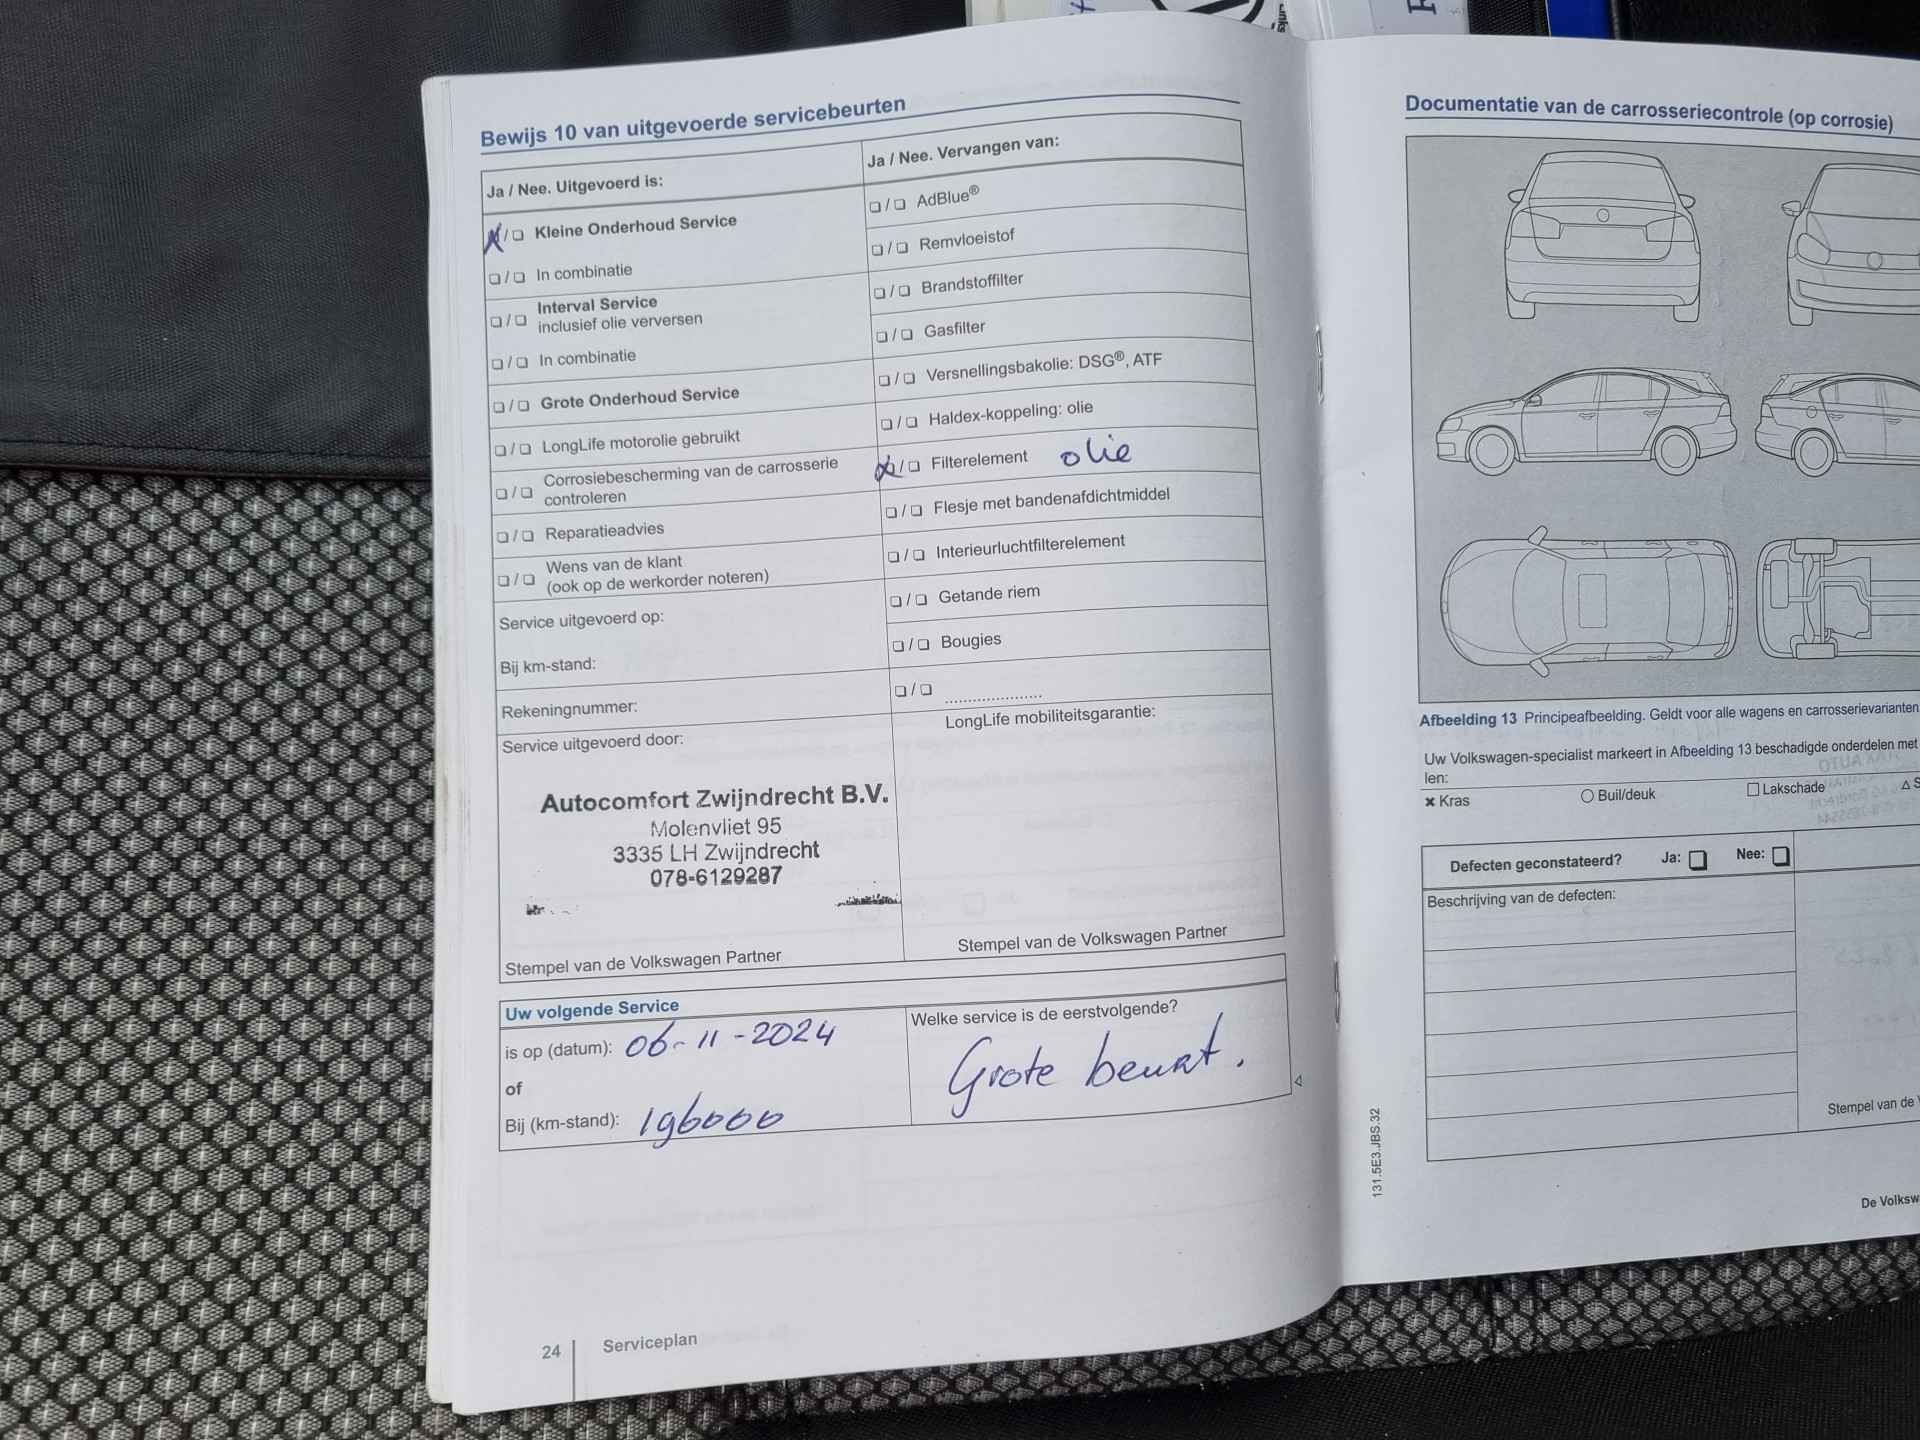 Bewijs 10 van uitgevoerde servicebeurten
Ja / Nee. Uitgevoerd is:
Kleine Onderhoud Service
In combinatie
Interval Service
inclusief olie verversen
In combinatie
Grote Onderhoud Service
LongLife motorolie gebruikt
Corrosiebescherming van de carrosserie
controleren
Reparatieadvies
Wens van de klant
(ook op de werkorder noteren)
Service uitgevoerd op:
Bij km-stand:
Rekeningnummer:
Service uitgevoerd door:
Autocomfort Zwijndrecht B.V.
Molenvliet 95
3335 LH Zwijndrecht
078-6129287
Stempel van de Volkswagen Partner
Ja / Nee. Vervangen van:
AdBlue®
Remvloeistof
Brandstoffilter
Gasfilter
Versnellingsbakolie: DSG®, ATF
Haldex-koppeling: olie
Filterelement olie
Flesje met bandenafdichtmiddel
Interieurluchtfilterelement
Getande riem
Bougies
.....................
LongLife mobiliteitsgarantie:
Stempel van de Volkswagen Partner
Uw volgende Service
is op (datum): 06-11-2024
of
Bij (km-stand): 196000
Welke service is de eerstvolgende?
Grote beurt.
24
Serviceplan
Documentatie van de carrosseriecontrole (op corrosie)
Afbeelding 13 Principeafbeelding. Geldt voor alle wagens en carrosserievarianten
Uw Volkswagen-specialist markeert in Afbeelding 13 beschadigde onderdelen met
len:
Kras
Buil/deuk
Lakschade
Defecten geconstateerd? Ja: Nee:
Beschrijving van de defecten:
Stempel van de
131.5E3.JBS.32
De Volksw